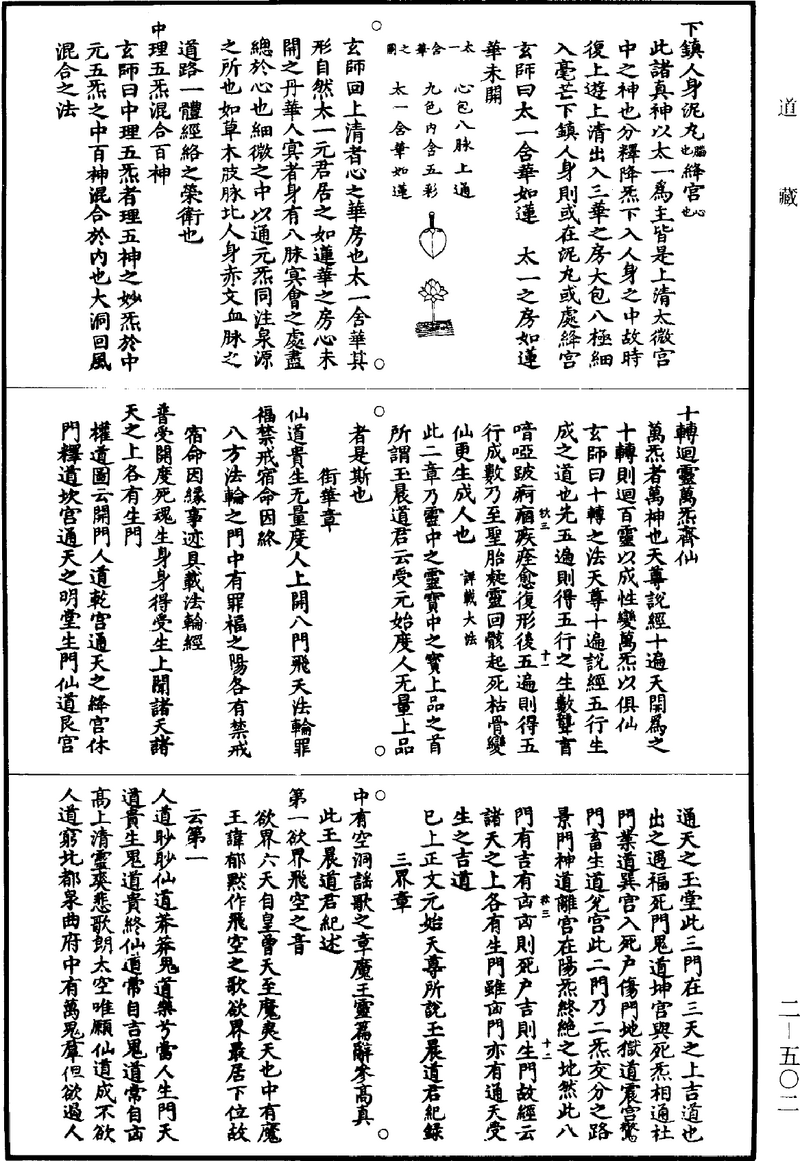 道藏
下鎮人身泥丸腦也絳宮心也
此諸真神以太一為主皆是上清太微宮
中之神也分釋降炁下入人身之中故時
復上遊上清出入三華之房大包八極細
入毫芒下鎮人身則或在泥丸或處絳宮
玄師曰太一含華如蓮　太一之房如蓮
華未開
太一含華之圖
心包八脉上通
九色內含五彩
太一含華如蓮
玄師回上清者心之華房也太一含華其
形自然太一元君居之如蓮華之房心未
開之丹華人寞者身有八脉寞會之處盡
總於心也細微之中以通元炁同注泉源
之所也如草木肢脉比人身赤文血脉之
道路一體經絡之榮衛也
中理五炁混合百神
玄師曰中理五炁者理五神之妙炁於中
元五炁之中百神混合於內也大洞回風
混合之法
十轉迴靈萬炁齊仙
萬炁者萬神也天尊說經十遍天開為之
十轉則迴百靈以成性變萬炁以俱仙
玄師曰十轉之法天尊十遍說經五行生
成之道也先五遍則得五行之生數聾盲
喑啞跛痾痼疾痊愈復形後五遍則得五
行成數乃至聖胎凝靈回骸起死枯骨變
仙更生成人也　詳載大法
此二章乃靈中之靈寶中之寶上品之首
所謂玉晨道君云受元始度人无量上品
者是斯也
街華章
仙道貴生无量度人上開八門飛天法輪罪
福禁戒宿命因終
八方法輪之門中有罪福之陽各有禁戒
宿命因緣事迹具載法輪經
普受開度死魂生身身得受生上聞諸天諸
天之上各有生門
權道圖云開門人道乾宮通天之絳宮休
門釋道坎宮通天之明堂生門仙道艮宮
通天之玉堂此三門在三天之上吉道也
出之遇福死門鬼道坤宮與死炁相通社
門業道巽宮入死戶傷門地獄道震宮驚
門畜生道兌宮此二門乃二炁交分之路
景門神道離宮在陽炁終絕之地然此八
門有吉有凶凶則死戶吉則生門故經云
諸天之上各有生門雖凶門亦有通天受
生之吉道
已上正文元始天尊所說玉晨道君紀錄
三界章
中有空洞謠歌之章魔王靈篇辭參高真
此玉晨道君紀述
第一欲界飛空之音
欲界六天自皇曾天至魔夷天也中有魔
王諱郁默作飛空之歌欲界最居下位故
云第一
人道眇眇仙道莽莽鬼道樂兮當人生門天
道貴生鬼道貴終仙道常自吉鬼道常自凶
高上清靈爽悲歌朗太空唯願仙道成不欲
人道窮北都泉曲府中有萬鬼羣但欲遏人
二—五〇二